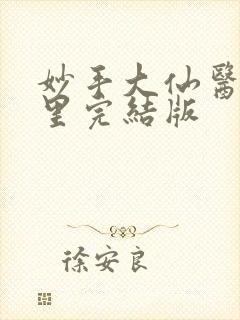 妙手大仙醫
里完結版
徐安良